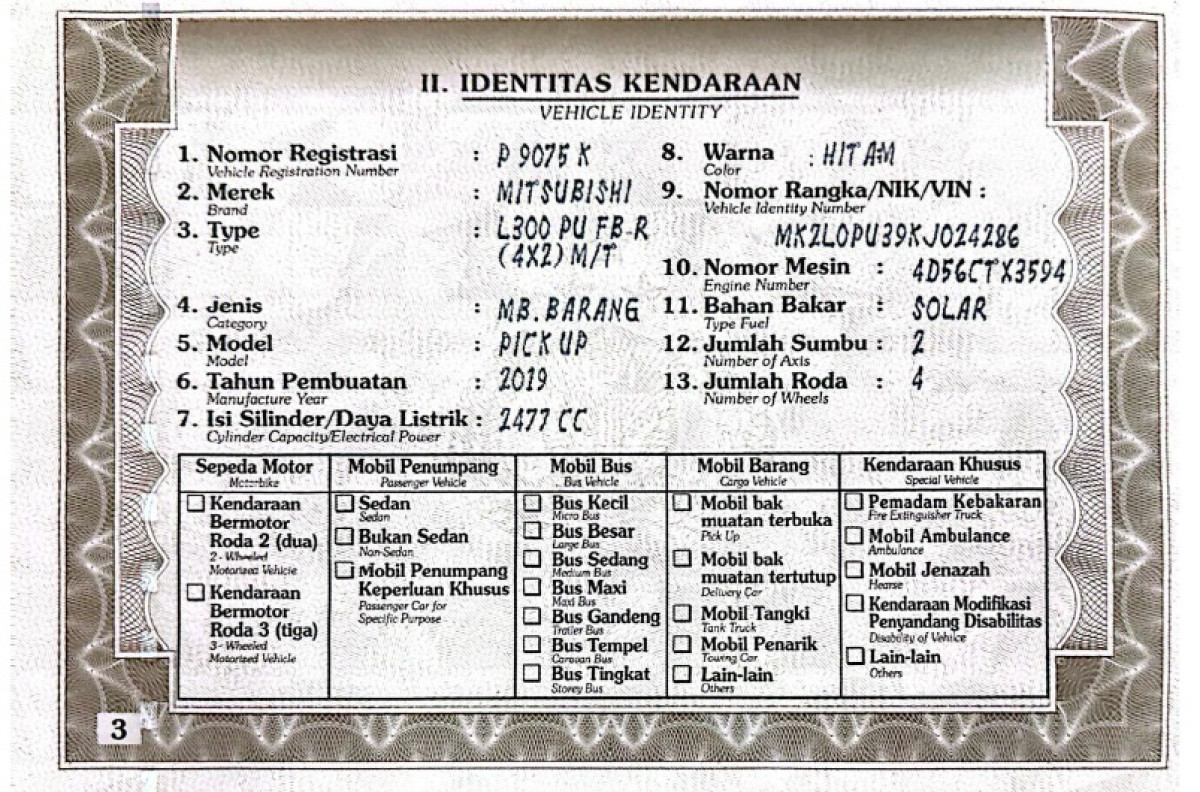 II. IDENTITAS KENDARAAN
VEHICLE IDENTITY
1. Nomor Registrasi : P 9075 K
Vehicle Registration Number
2. Merek : MITSUBISHI
Brand
3. Type : L300 PU FB-R
Type
(4X2) M/T
4. Jenis : MB. BARANG
Category
5. Model : PICK UP
Model
6. Tahun Pembuatan : 2019
Manufacture Year
7. Isi Silinder/Daya Listrik : 2477 CC
Cylinder Capacity/Electrical Power
8. Warna : HITAM
Color
9. Nomor Rangka/NIK/VIN :
Vehicle Identity Number
MK2L0PU39KJ024286
10. Nomor Mesin : 4D56CTX3594
Engine Number
11. Bahan Bakar : SOLAR
Type Fuel
12. Jumlah Sumbu : 2
Number of Axis
13. Jumlah Roda : 4
Number of Wheels
Sepeda Motor
Motorbike
Kendaraan
Bermotor
Roda 2 (dua)
2 - Wheeled
Motorised Vehicle
Kendaraan
Bermotor
Roda 3 (tiga)
3 - Wheeled
Motorised Vehicle
Mobil Penumpang
Passenger Vehicle
Sedan
Sedan
Bukan Sedan
Non-Sedan
Mobil Penumpang
Keperluan Khusus
Passenger Car for
Specific Purpose
Mobil Bus
Bus Vehicle
Bus Kecil
Micro Bus
Bus Besar
Large Bus
Bus Sedang
Medium Bus
Bus Maxi
Maxi Bus
Bus Gandeng
Trailer Bus
Bus Tempel
Caravan Bus
Bus Tingkat
Storey Bus
Mobil Barang
Cargo Vehicle
Mobil bak
muatan terbuka
Pick Up
Mobil bak
muatan tertutup
Delivery Car
Mobil Tangki
Tank Truck
Mobil Penarik
Towing Car
Lain-lain
Others
Kendaraan Khusus
Special Vehicle
Pemadam Kebakaran
Fire Extinguisher Truck
Mobil Ambulance
Ambulance
Mobil Jenazah
Hearse
Kendaraan Modifikasi
Penyandang Disabilitas
Disability of Vehicle
Lain-lain
Others
3